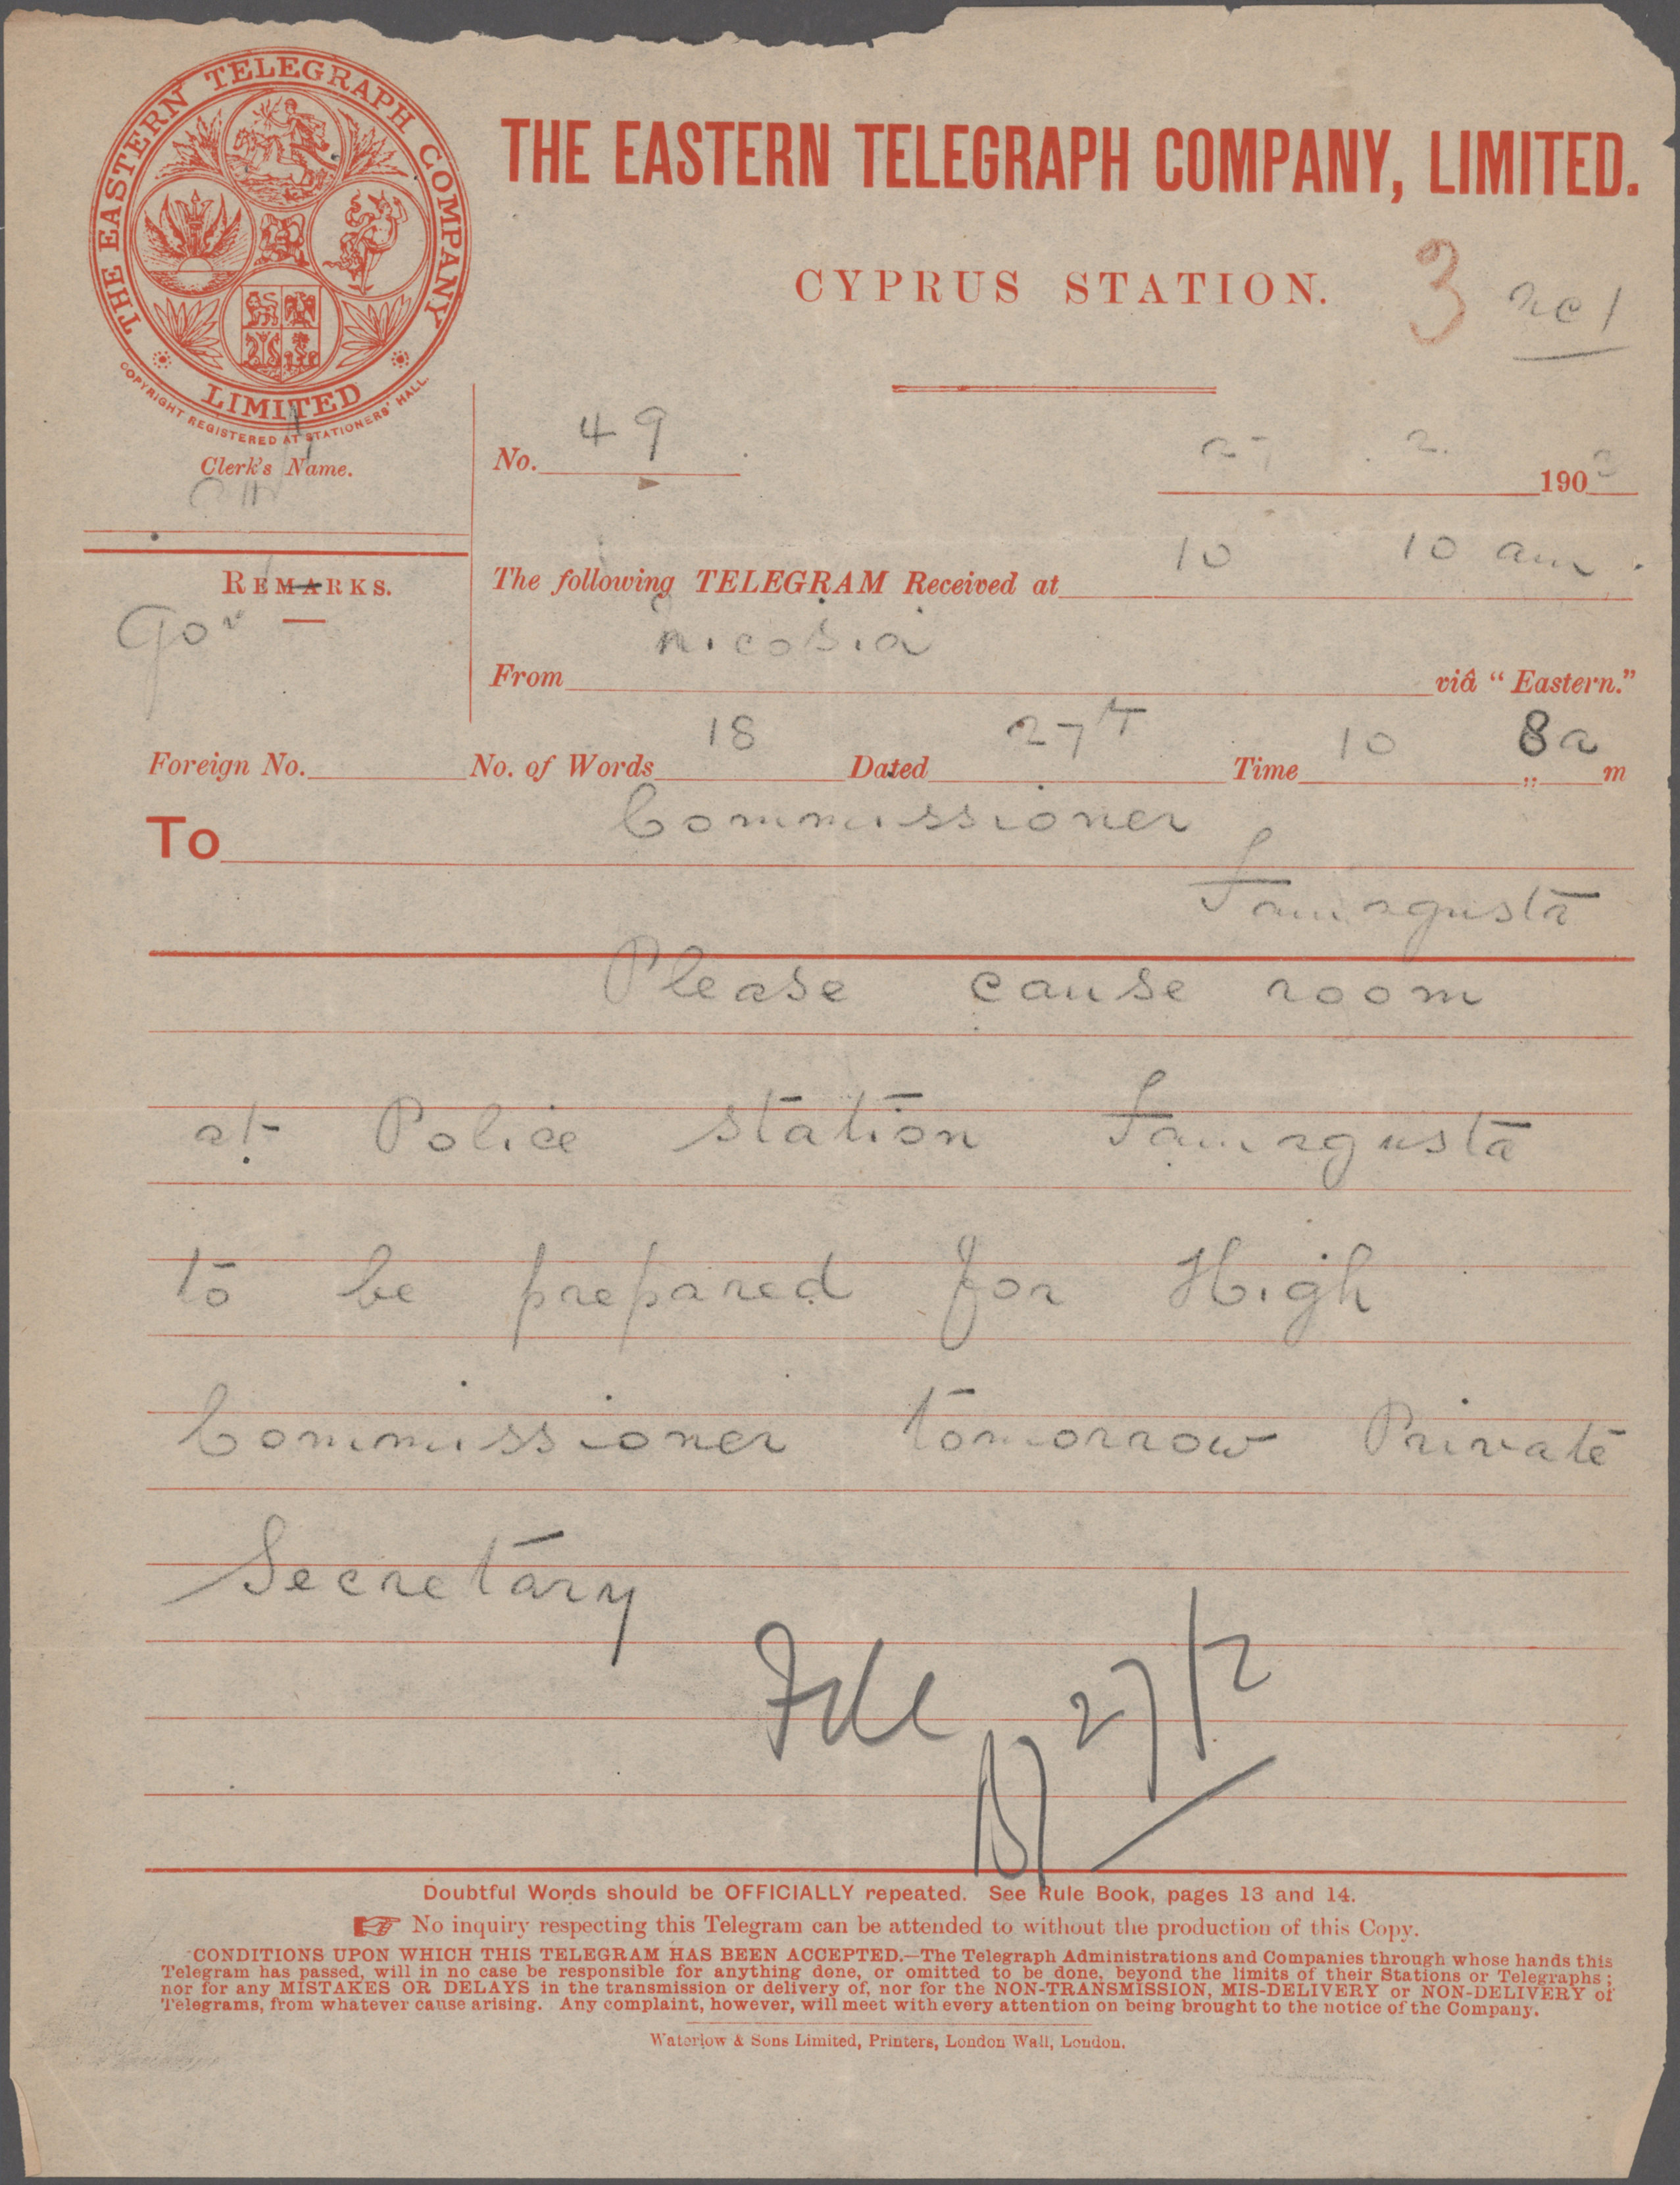 THE EASTERN TELEGRAPH COMPANY
LIMITED
COPYRIGHT REGISTERED AT STATIONERS' HALL.
THE EASTERN TELEGRAPH COMPANY, LIMITED.
CYPRUS STATION.
3
Clerk's Name.
No. 49
27 . 2. 190
REMARKS.
Gov
The following TELEGRAM Received at 10 10 am
From Nicosia viâ "Eastern."
Foreign No. No. of Words 18 Dated 27th Time 10 " 8 a m
To Commissioner
Famagusta
Please cause room
at Police station Famagusta
to be prepared for High
Commissioner tomorrow Private
Secretary
File
27/2
Doubtful Words should be OFFICIALLY repeated. See Rule Book, pages 13 and 14.
☞ No inquiry respecting this Telegram can be attended to without the production of this Copy.
CONDITIONS UPON WHICH THIS TELEGRAM HAS BEEN ACCEPTED.—The Telegraph Administrations and Companies through whose hands this
Telegram has passed, will in no case be responsible for anything done, or omitted to be done, beyond the limits of their Stations or Telegraphs;
nor for any MISTAKES OR DELAYS in the transmission or delivery of, nor for the NON-TRANSMISSION, MIS-DELIVERY or NON-DELIVERY of
Telegrams, from whatever cause arising. Any complaint, however, will meet with every attention on being brought to the notice of the Company.
Waterlow & Sons Limited, Printers, London Wall, London.